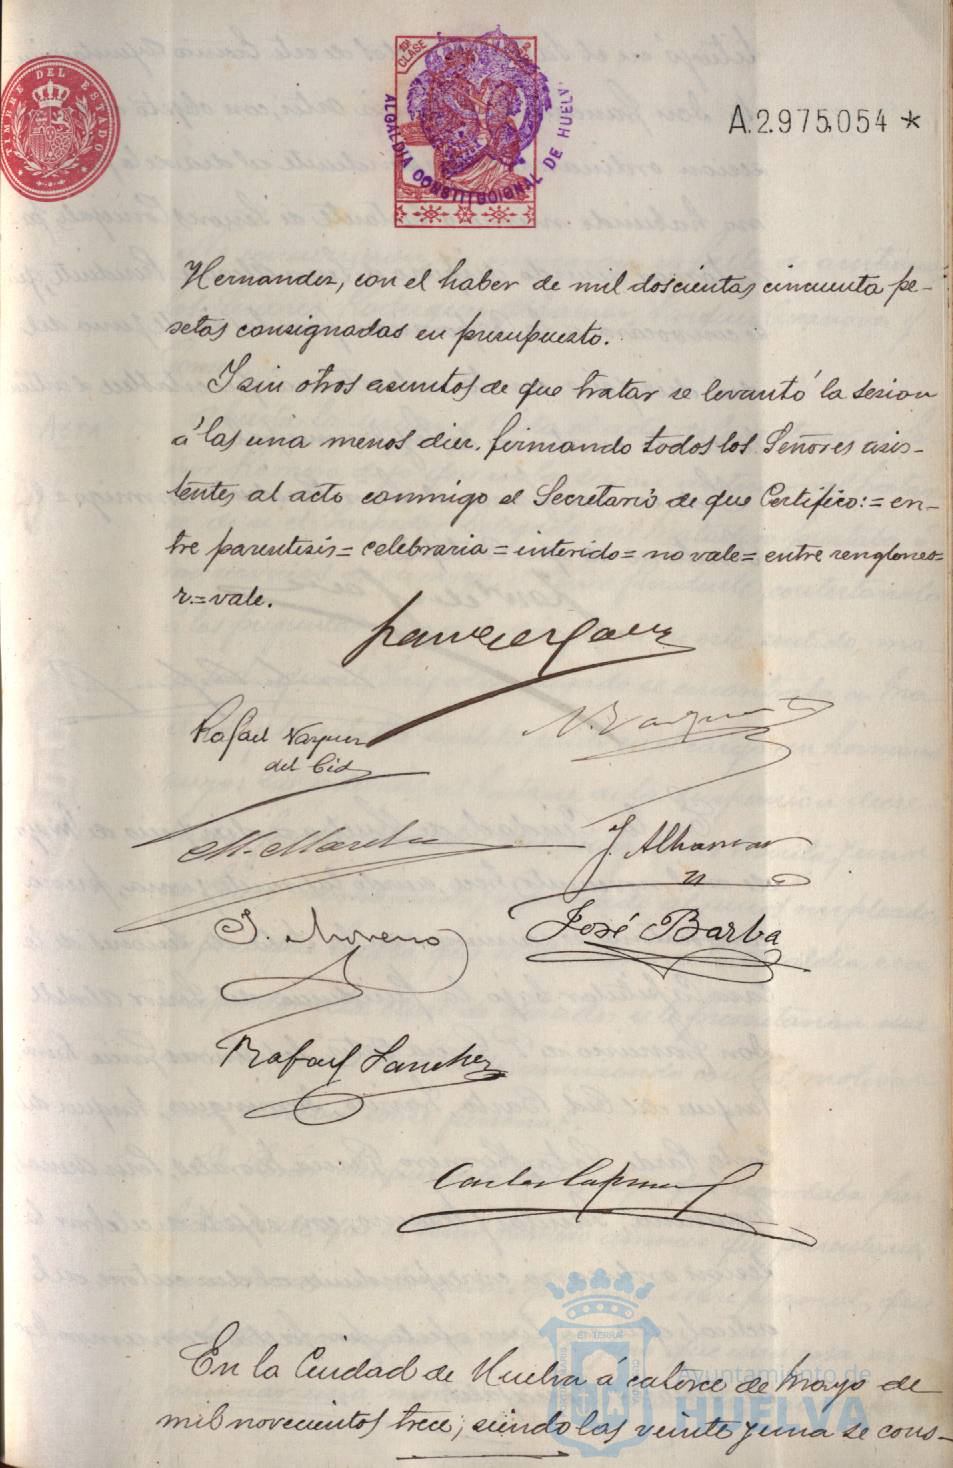 TIMBRE DEL ESTADO
CLASE
ALCALDIA CONSTITUCIONAL DE HUELVA
A.2.975,054 *
Hernandez, con el haber de mil doscientas cincuenta pe-
setas consignadas en presupuesto.
Y sin otros asuntos de que tratar se levantó la sesion
á las una menos diez, firmando todos los Señores asis-
tentes al acto conmigo el Secretario de que Certifico:= en-
tre parentesis= celebraria = interido= no vale= entre renglones=
r.=vale.
Rafael Vazquez
del Cid
J. Moreno
José Barba
Rafael Sanchez
En la Ciudad de Huelva á catorce de Mayo de
mil novecientos trece; siendo las veinte y una se cons-
Ayuntamiento de
HUELVA